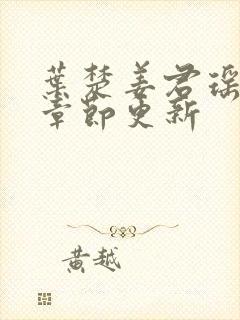 葉楚姜君瑶
章節更新
黄越